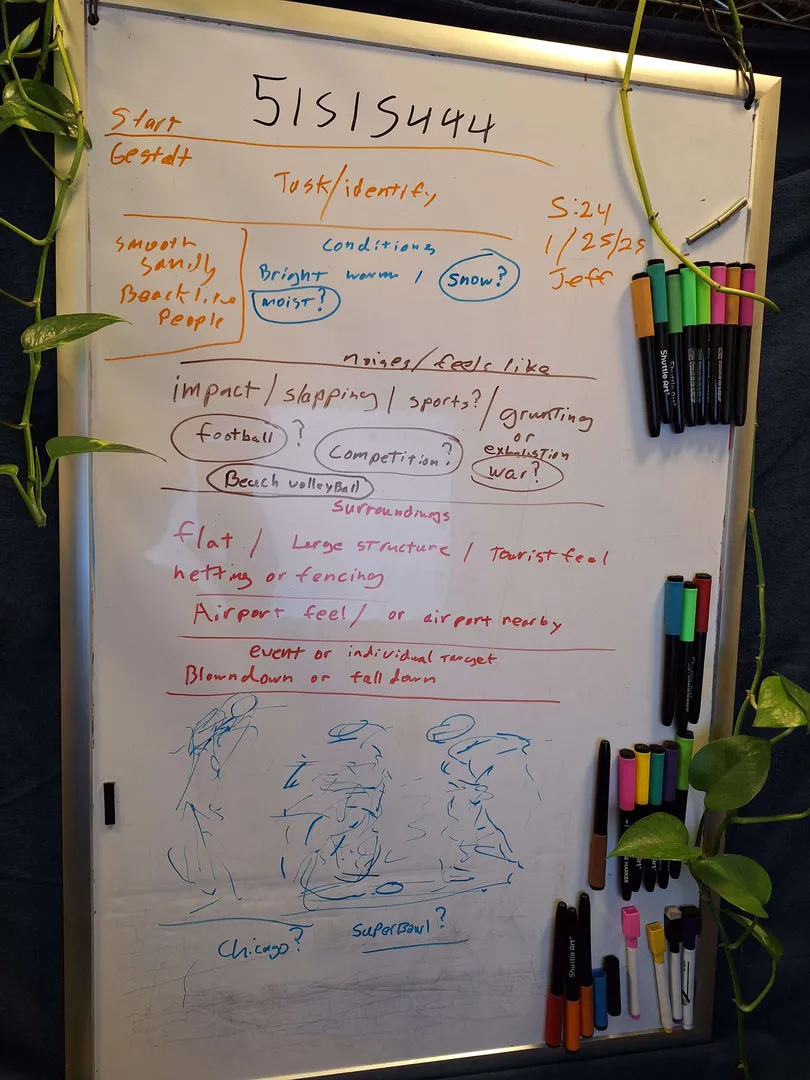 51515444
Start
Gestalt
Task/identify
S:24
1/25/25
Jeff
Smooth
Sandy
Beachline
People
Conditions
Bright warm / snow?
moist?
noises/feels like
impact / slapping / sports? / grunting
or
exhaustion
football ? Competition? war?
Beach volleyBall
Surroundings
flat / Large structure / Tourist feel
netting or fencing
Airport feel / or airport nearby
event or individual Target
Blowndown or fall down
Chicago? SuperBowl?
Shuttle Art
Shuttle Art
Shuttle Art